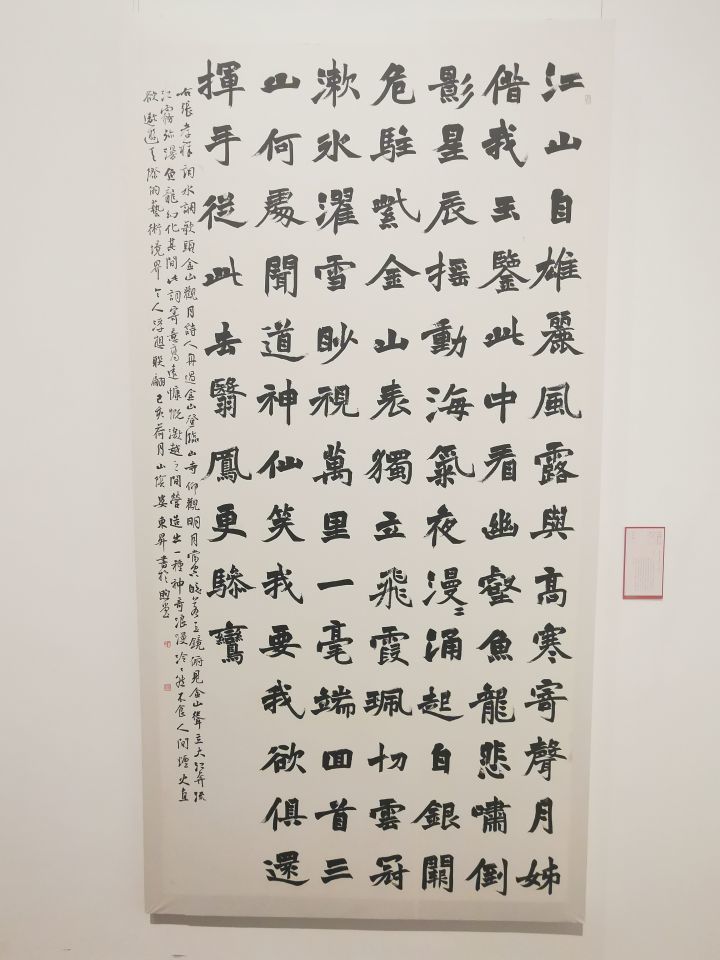 江山自雄麗風露與高寒寄聲月姊
借我玉鑒此中看幽壑魚龍悲嘯倒
影星辰摇動海氣夜漫〻涌起白銀闕
危駐紫金山表獨立飛霞珮切雲冠
漱冰濯雪眇視萬里一毫端回首三
山何處聞道神仙笑我要我欲俱還
揮手從此去翳鳳更驂鸞
右張孝祥詞水調歌頭金山觀月詩人舟過金山登臨山寺仰觀明月當空皎若玉鏡俯見金山聳立大江奔流
江霧弥漫魚龍幻化其間此詞寄意高遠慷慨激越之間營造出一種神奇浪漫冷〻然不食人間煙火直
欲遨遊天際的藝術境界令人浮想聯翩己亥荷月山陰婁東昇書於